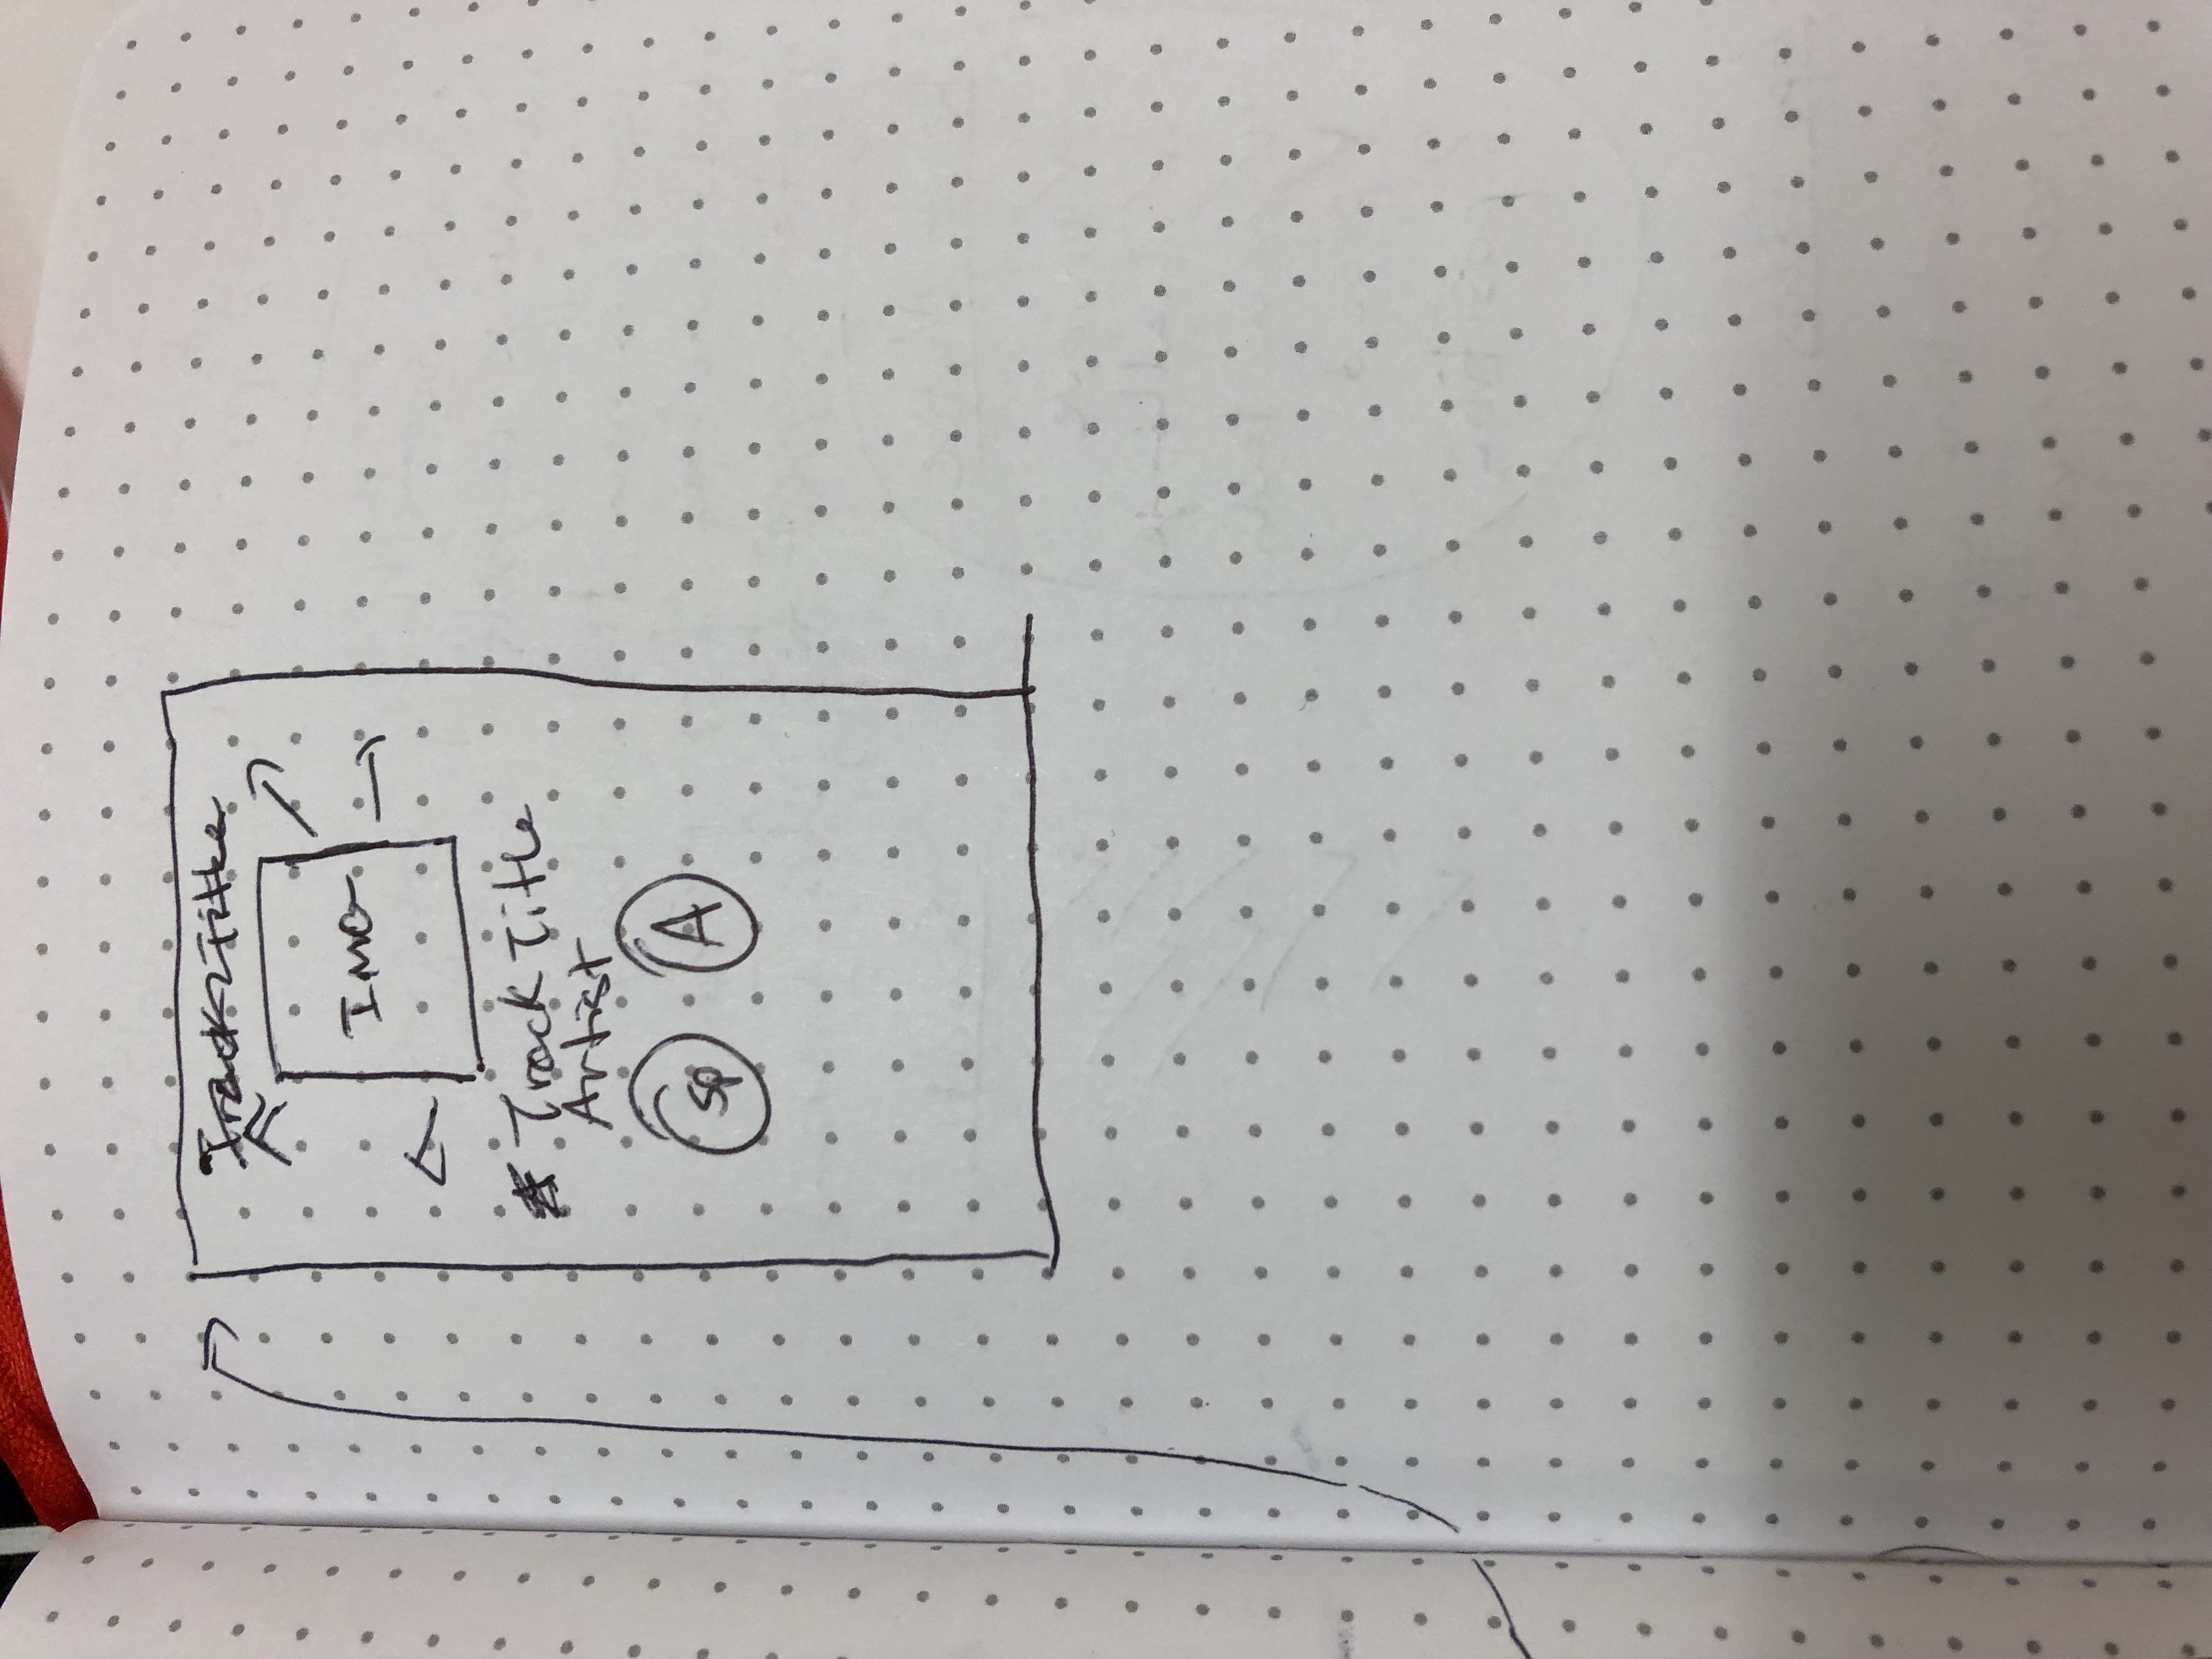 Track Title
IMG
Track Title
Artist
Sp
A